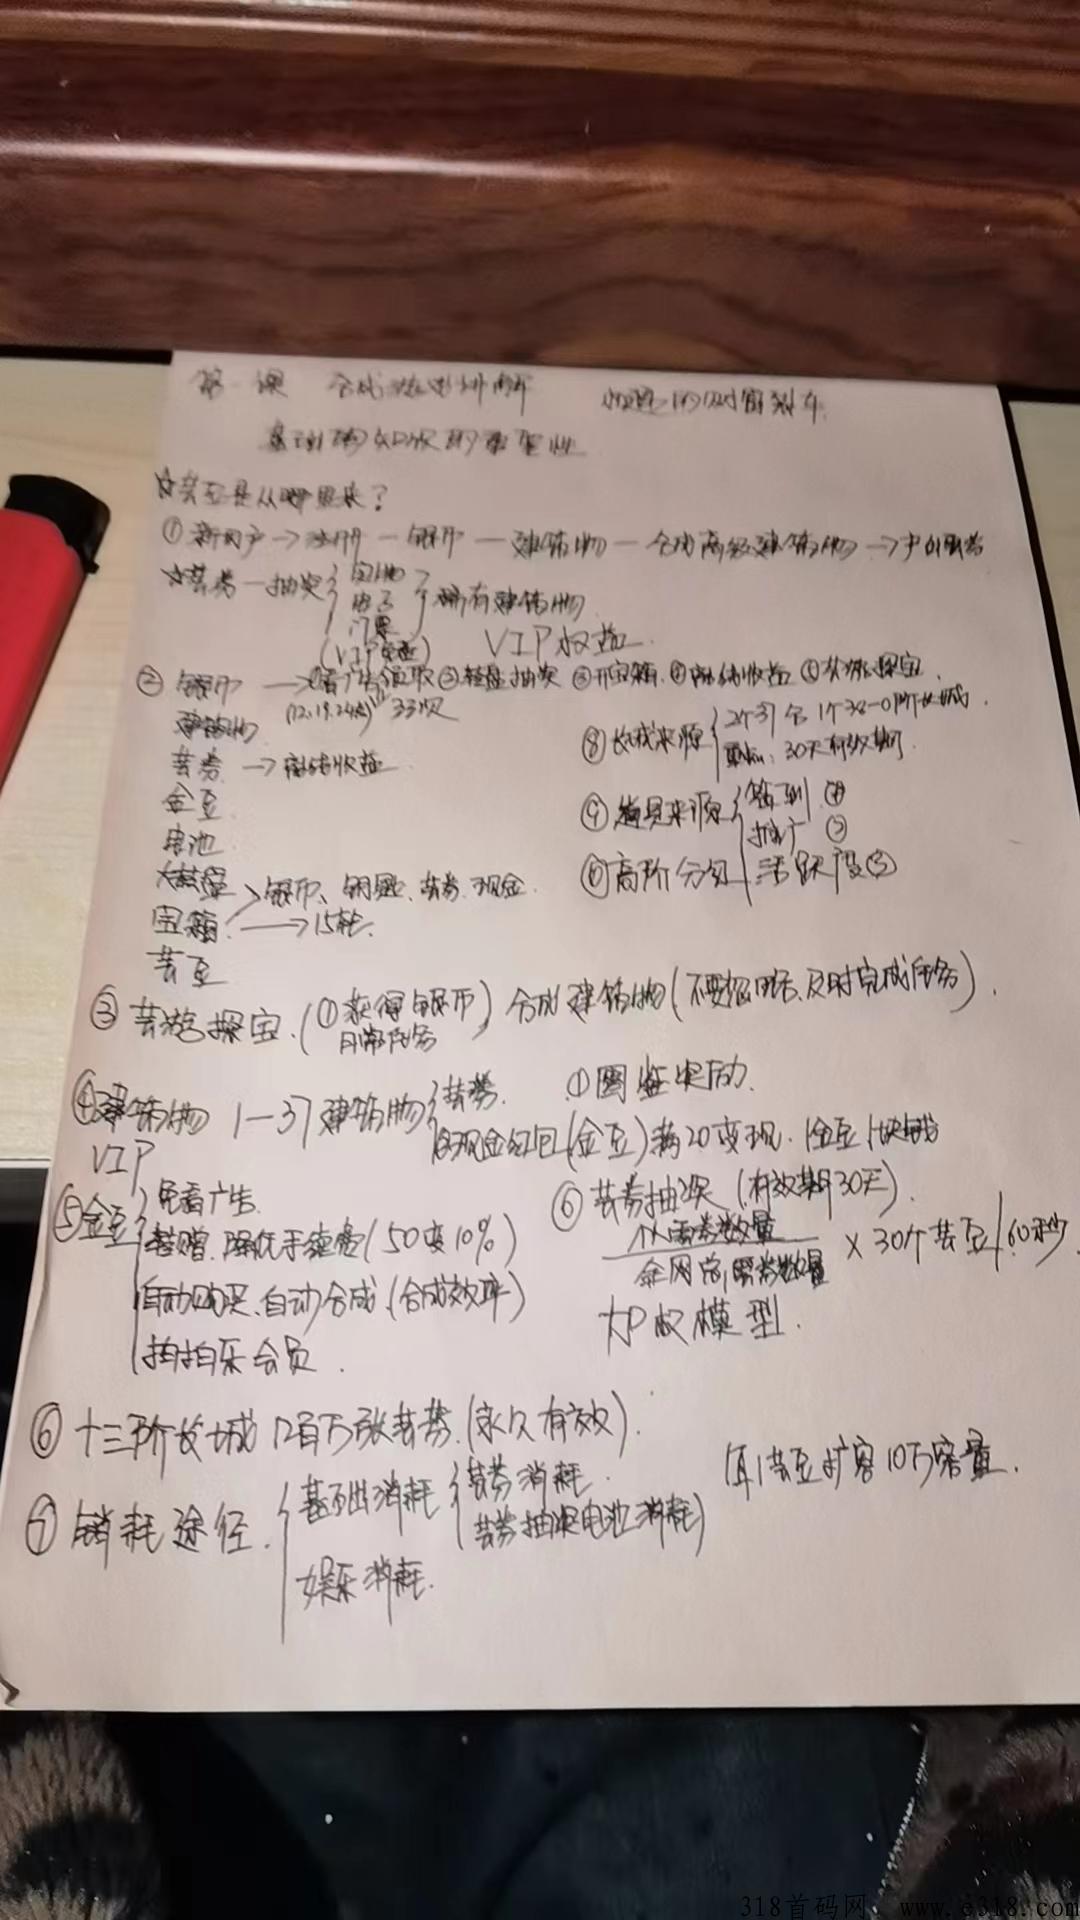 第一课 合成游戏讲解
基础的知识的重要性
☆芸豆是从哪里来?
①新用户→注册一银币一建筑物一合成高级建筑物→
☆芸券一抽奖 宝物 门票 稀有建筑物
(VIP 免 ) VIP权益.
②银币 →①看广告领取②转盘抽奖③开宝箱.④离线收益⑤芸游探宝
建筑物 33次
芸券 →离线收益
金豆
电池
大转盘 银币、钥匙、芸券.现金
宝箱. →15转.
芸豆
⑧长城来源 2个37合1个38-0阶长城
30天有效期
⑨道具来源 签到④
推广②
⑩高阶分红 活跃度③
③芸游探宝.(①获得银币 日常任务) 合成建筑物(不要 及时完成任务).
④建筑物 1—37建筑物 芸券. ①图鉴奖励.
现金红包(金豆)满20变现.1金豆1块钱
VIP
⑤金豆 免看广告
转赠.降低手续费(50变10%)
自动购买、自动合成.(合成效率)
拍拍乐会员.
⑥芸券抽奖(有效期30天).
个人芸券数量
全网总芸券数量 ×30个芸豆/60秒.
加权模型.
⑥十三阶长城 百万张芸券.(永久有效).
⑦销耗途径. 基础消耗 芸券消耗.
芸券抽奖电池消耗
娱乐消耗.
1芸豆扩容10万容量.
318首码网, www.e318.com